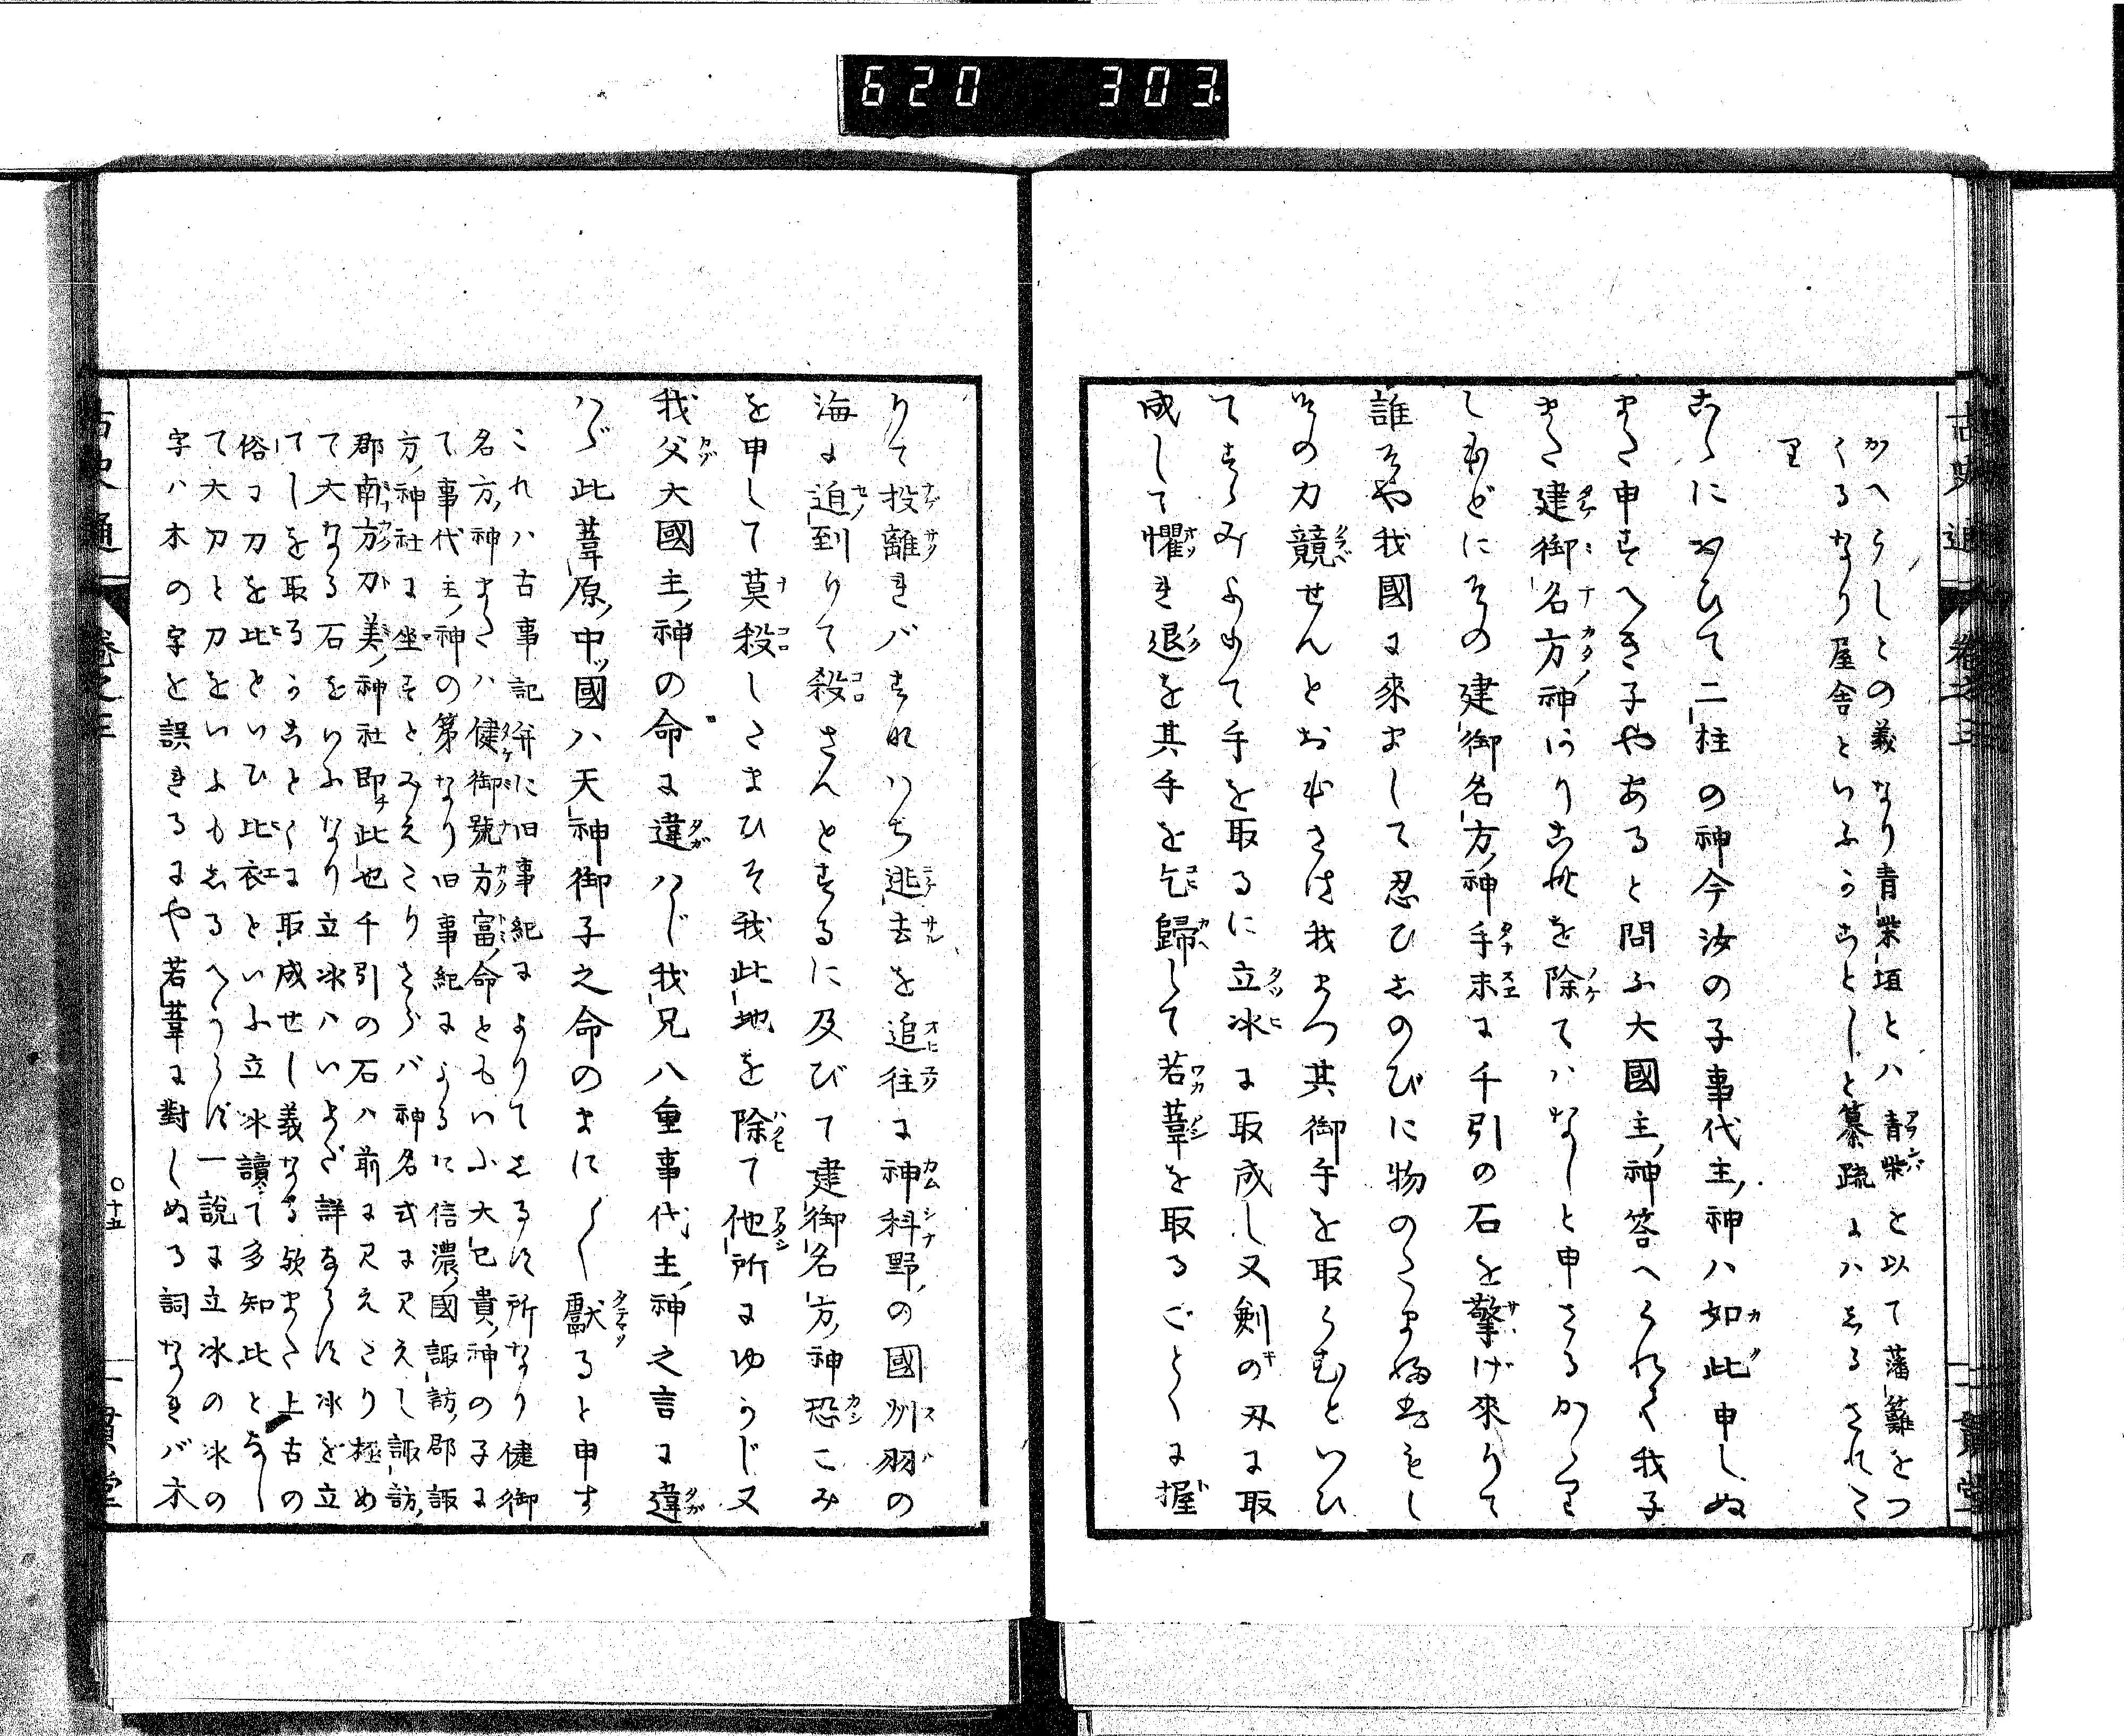 620 303
かへらしとの義なり青柴垣とハ青柴を以て藩籬をつ
くるなり屋舎といふうことしと纂疏にハしるされた
り
こゝにおひて二柱の神今汝の子事代主神ハ如此申しぬ
また申すへき子やあると問ふ大國主神答へられく我子
また建御名方神ありこれを除てハなしと申さるかゝり
しもどにその建御名方神手末に千引の石を擎げ來りて
誰そや我國に來まして忍ひしのびに物のたまふ
その力競せんとおもさは我まつ其御手を取らむといひ
てすゝみよりて手を取るに立氷に取成し又剣の刃に取
成して懼き退を其手を乞歸して若葦を取るごとくに握
りて投離きバすなハち逃去を追往に神科野の國州羽の
海に迫到りて殺さんとするに及びて建御名方神恐こみ
を申して莫殺したまひそ我此地を除て他所にゆうじ又
我父大國主神の命に違ハじ我兄八重事代主神之言に違
ハじ此葦原中國ハ天神御子之命のまに〱獻ると申す
これハ古事記并に旧事紀によりてしるす所なり健御
名方神またハ健御號方富命ともいふ大己貴神の子に
て事代主神の第なり旧事紀によるに信濃國諏訪郡諏
方神社に坐すとみえたりさらバ神名式に見えし諏訪
郡南方刀美神社即此也千引の石ハ前に見えたり極め
て大なる石をいふなり立氷ハいまだ詳ならす氷を立
てしを取るうことくに取成せし義なる歟また上古の
俗に刀を比といひ比衣といふ立氷讀て多知比となし
て大刀と刀をいふも志るへうらす一説に立氷の氷の
字ハ木の字を誤きるにや若葦に對しぬる詞なきバ木
古史通 卷之三 〇十五 一貫堂